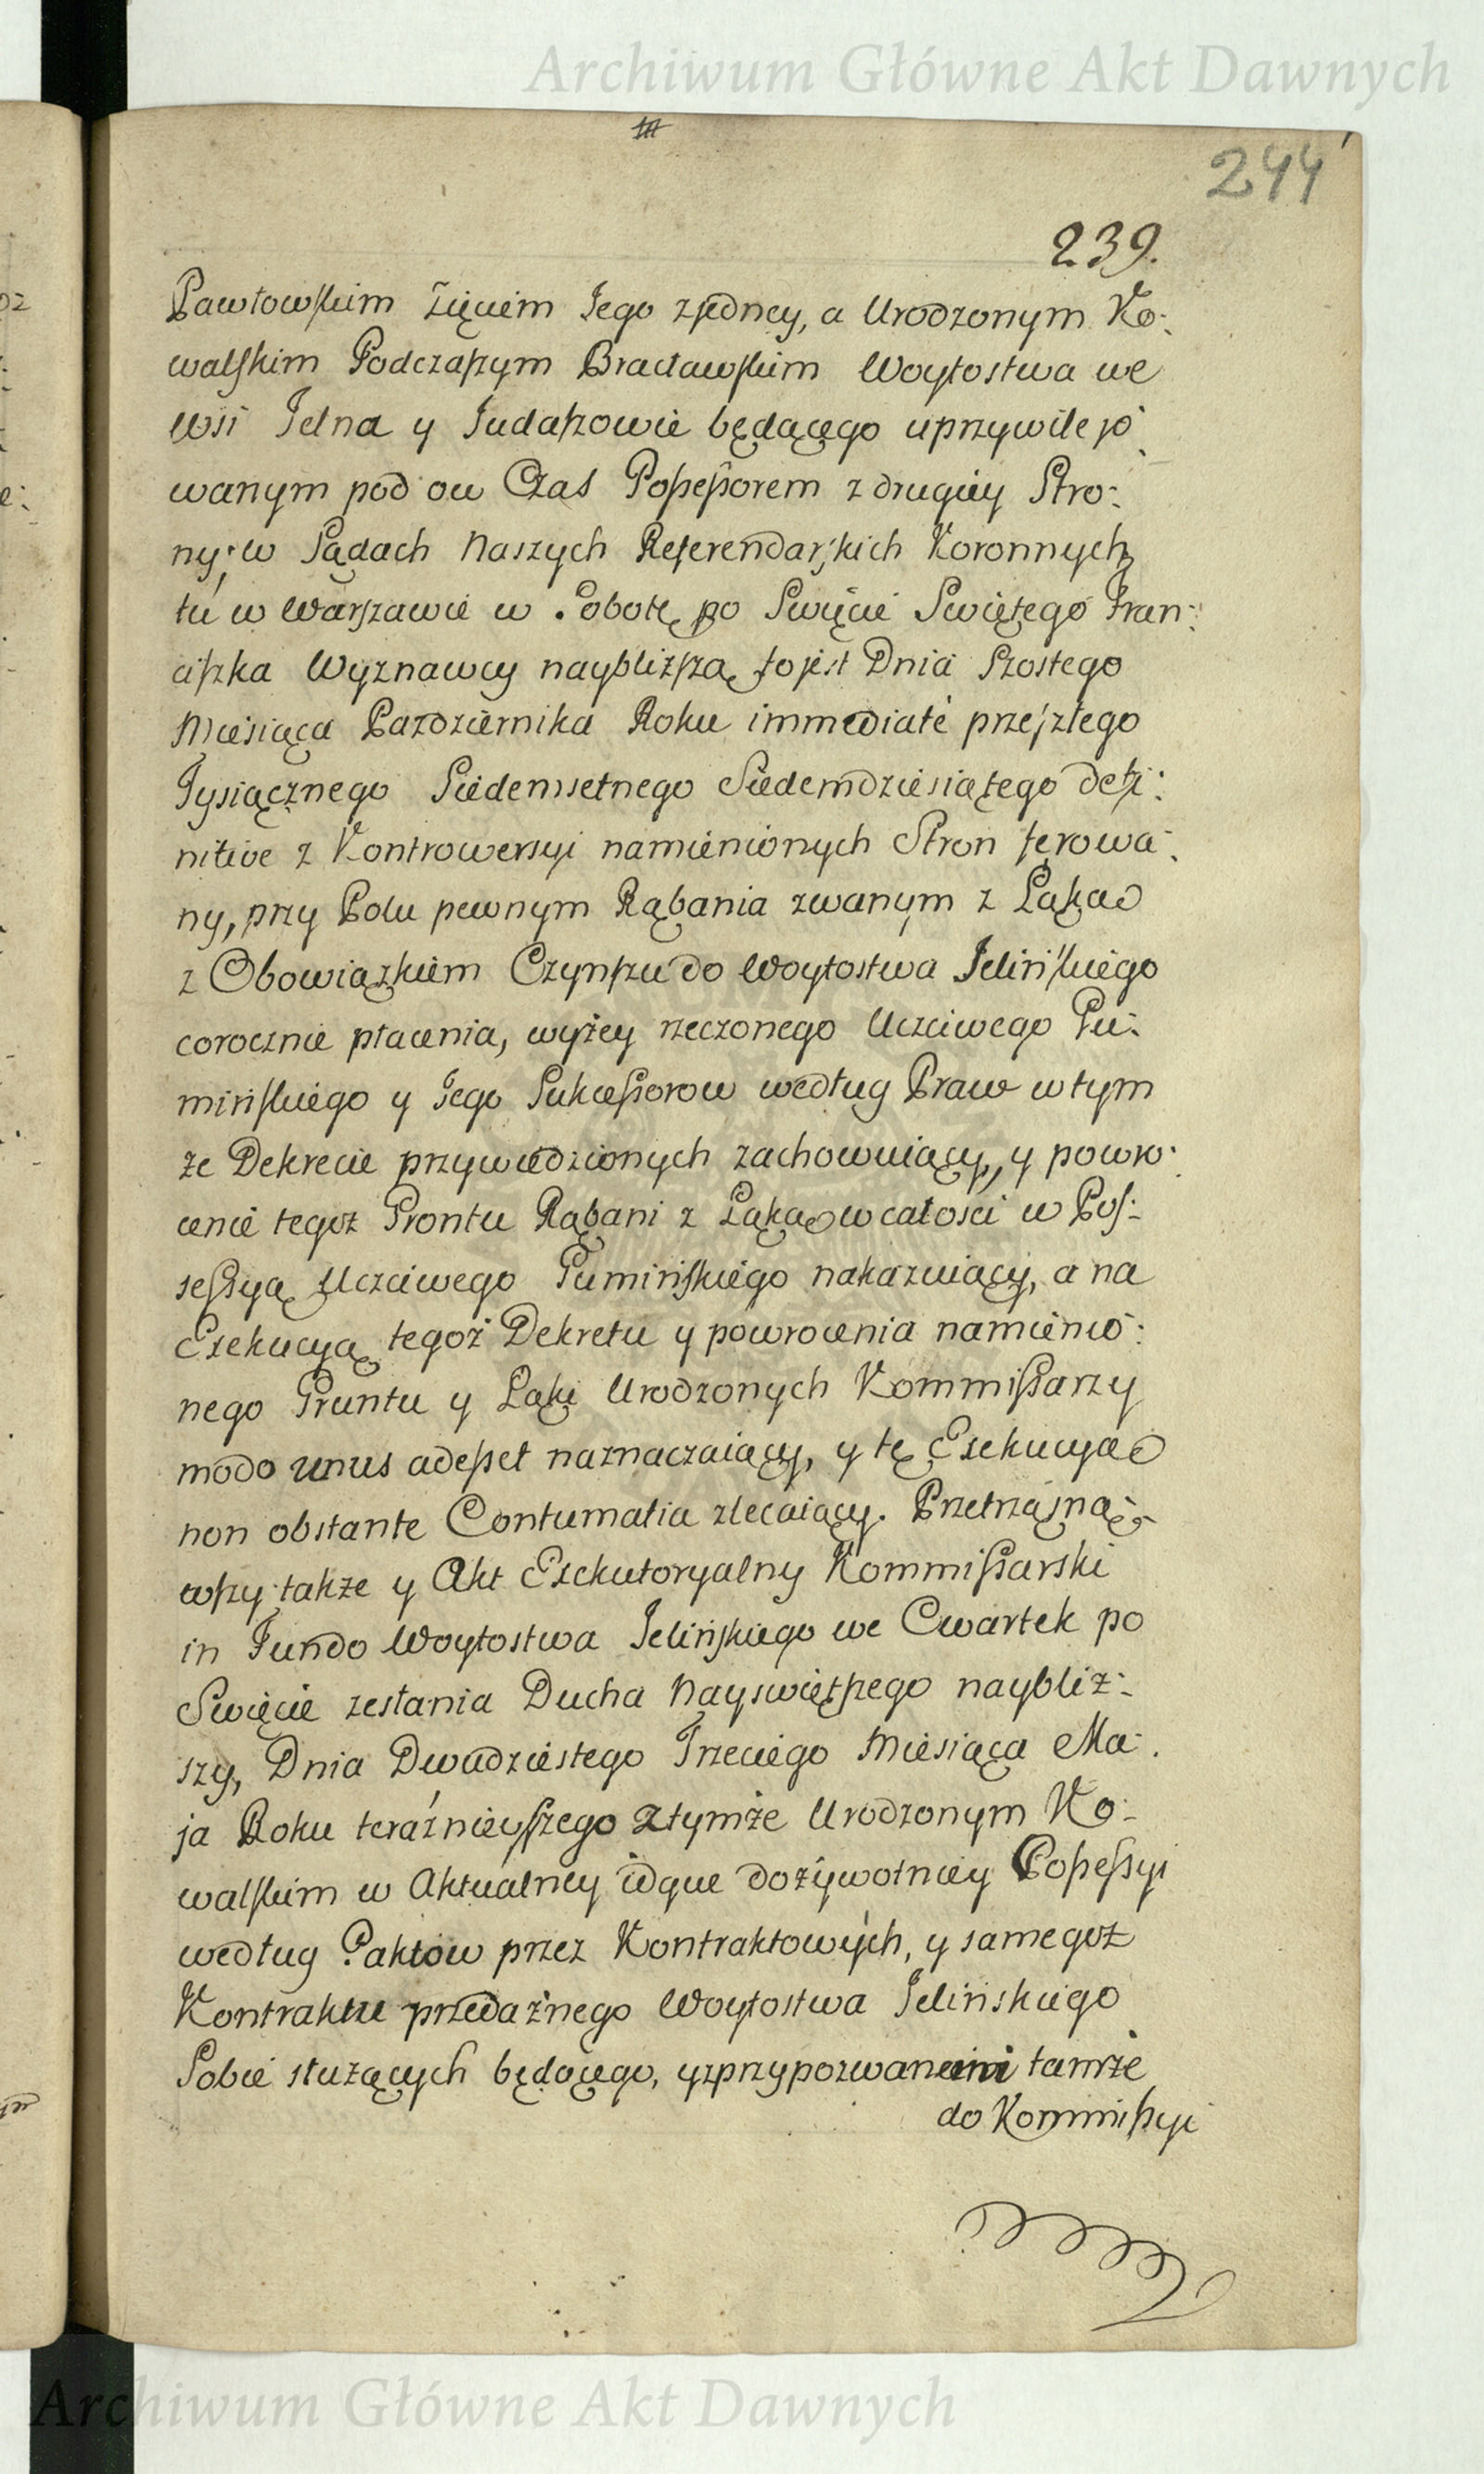 Archiwum Główne Akt Dawnych
244
239.
Pawłowskim Zięciem Jego z jedney, a Urodzonym Ko-
walskim Podczaszym Bracławskim Woytostwa we
wsi Jelna y Judaszowie będącego uprzywilejo
wanym pod ow Czas Possessorem z drugiey Stro-
ny; w Sądach Naszych Referendarskich Koronnych
tu w Warszawie w Sobotę po Święcie Swiętego Fran-
ciszka Wyznawcy naybliższą to jest Dnia Szostego
Miesiąca Pazdziernika Roku immediate przeszłego
Tysiącznego Siedemsetnego Siedemdziesiątego defi-
nitive z Kontrowersyi namienionych Stron ferowa-
ny, przy Polu pewnym Rąbania zwanym z Łąką
z Obowiązkiem Czynszu do Woytostwa Jelińskiego
corocznie płacenia, wyżey rzeczonego Uczciwego Gu-
mińskiego y Jego Sukcessorow według Praw w tym
że Dekrecie przywiedzionych zachowuiący, y powro-
cenie tegoż Grontu Rąbani z Łąką w całości w Pos-
sessyą Uczciwego Gumińskiego nakazuiący, a na
Exekucyą tegoż Dekretu y powrocenia namienio-
nego Gruntu y Łąki Urodzonych Kommissarzy
modo unus adesset naznaczaiący, y tę Exekucyą
non obstante Contumatia zlecaiący. Przetrząsną-
wszy także y Akt Exekutoryalny Kommissarski
in Fundo Woytostwa Jelińskiego we Czwartek po
Swięcie zesłania Ducha Nayswiętszego naybliż-
szy, Dnia Dwadziestego Trzeciego Miesiąca Ma-
ja Roku teraźnieyszego z tymże Urodzonym Ko-
walskim w Aktualney idque dożywotniey Possessyi
według Paktow przez Kontraktowych, y samegoż
Kontraktu przedażnego Woytostwa Jelińskiego
Sobie służących będącego, y z przypozwanemi tamże
do Kommissyi
Archiwum Główne Akt Dawnych